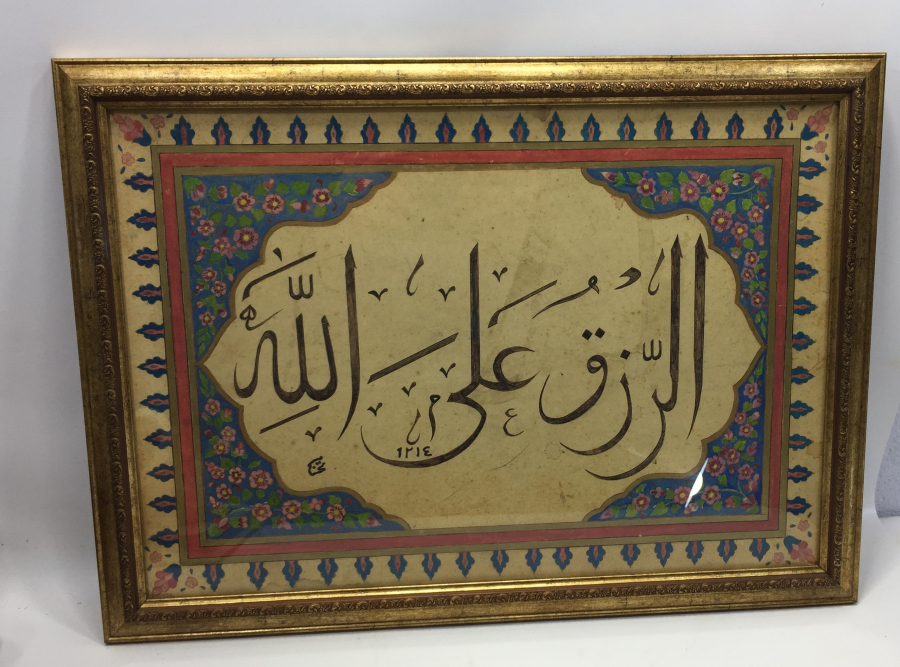 الرِّزْقُ عَلَى اللّٰهِ
١٢١٤